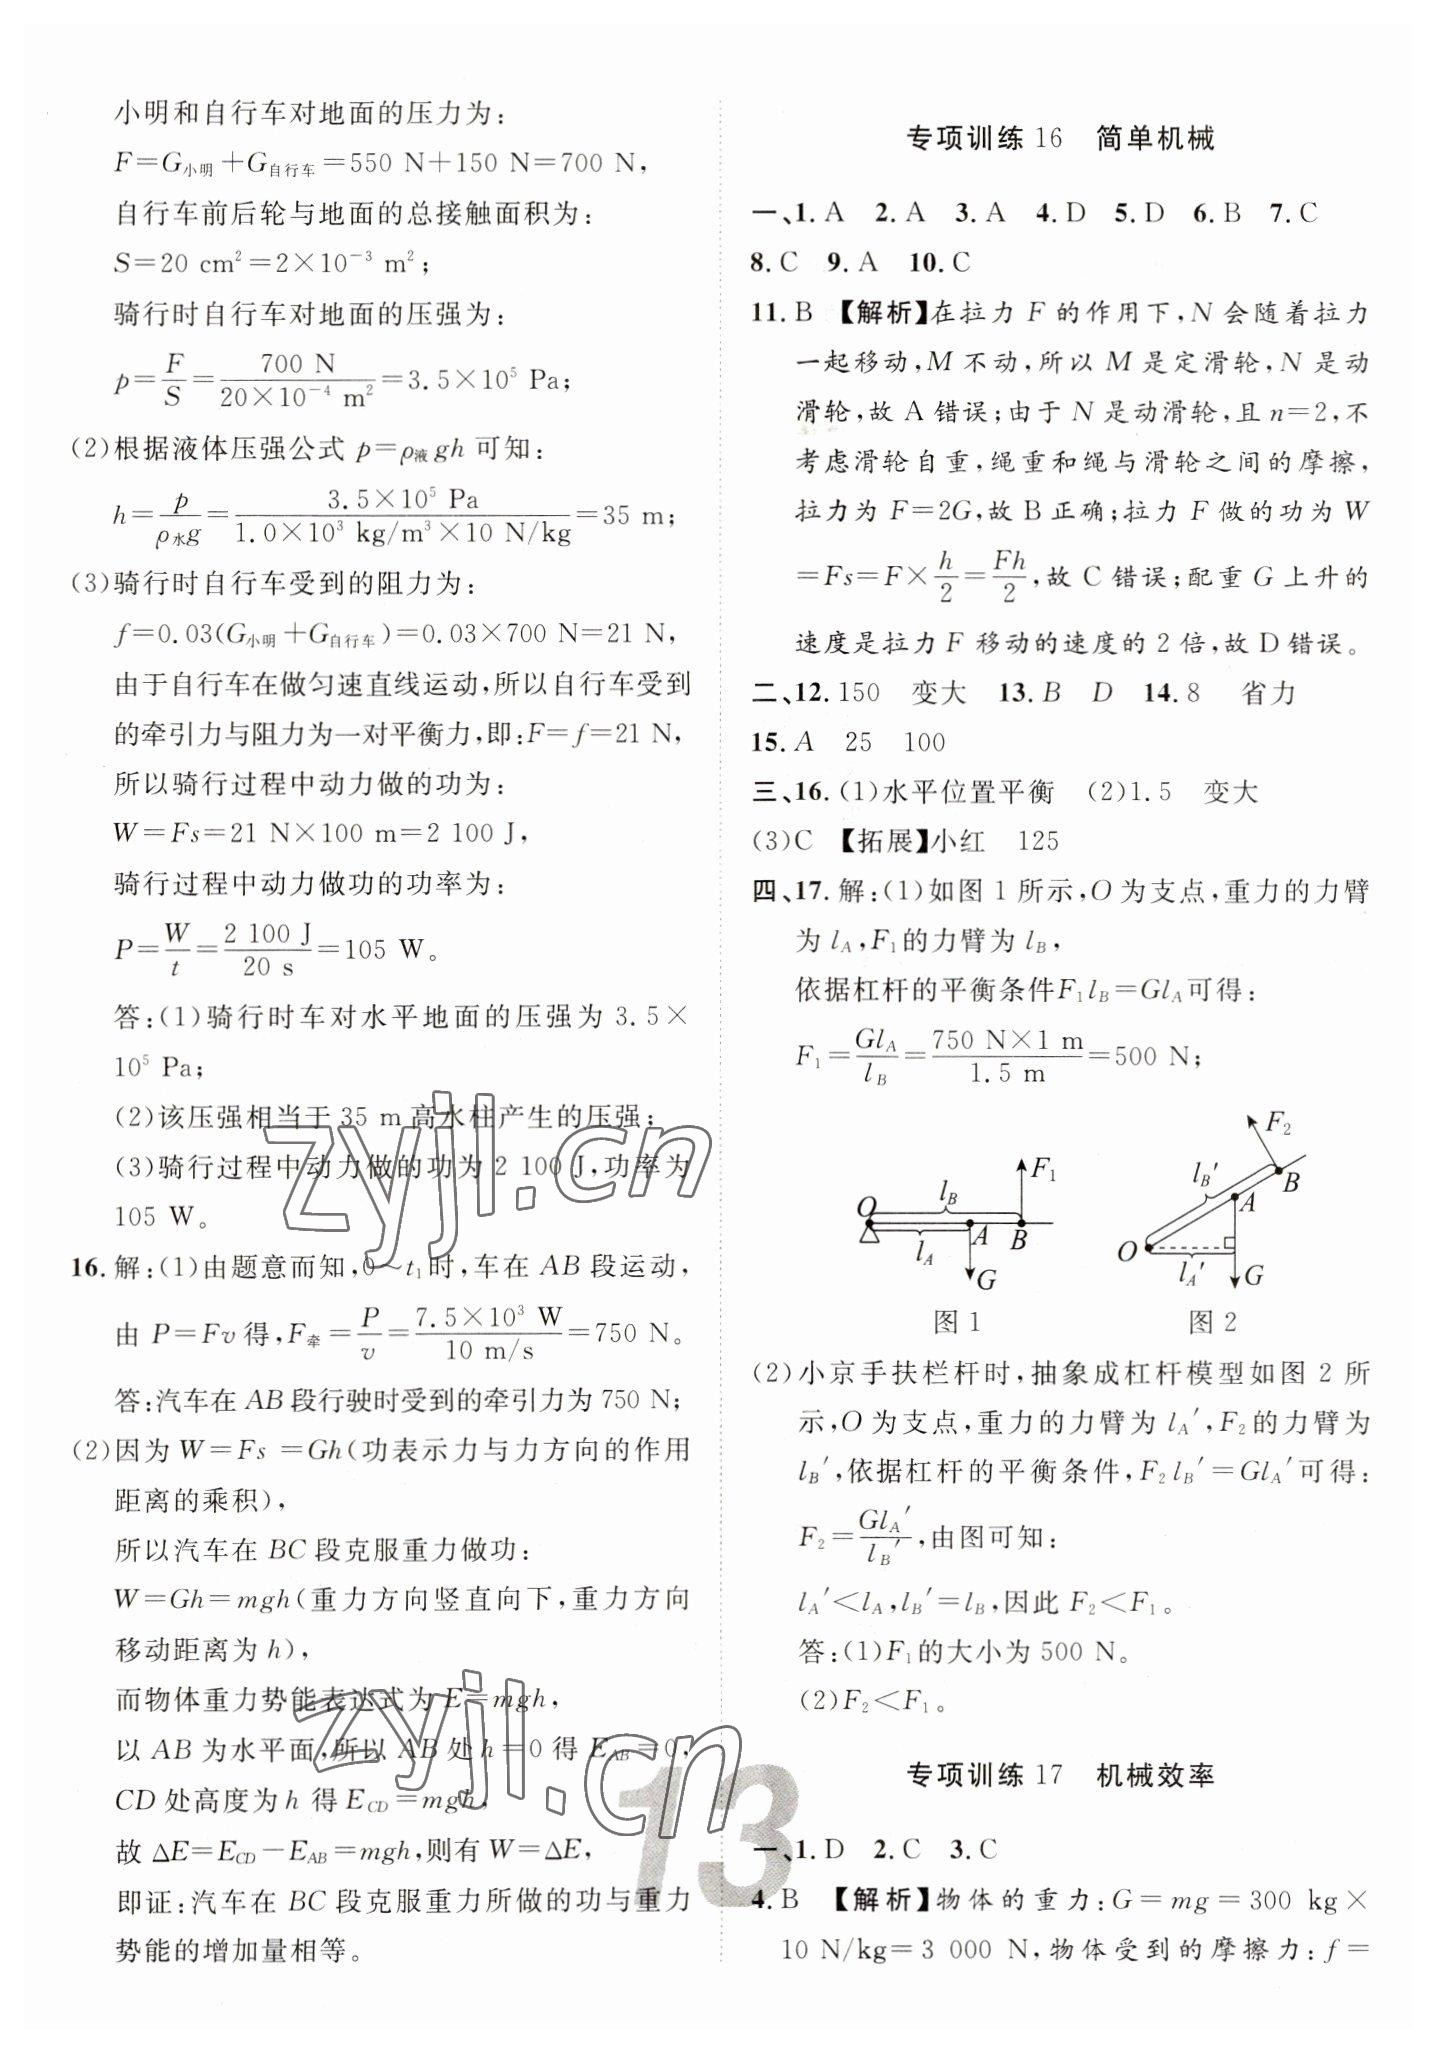 小明和自行车对地面的压力为:
F=G小明+G自行车=550 N+150 N=700 N,
自行车前后轮与地面的总接触面积为:
S=20 cm²=2×10⁻³ m²;
骑行时自行车对地面的压强为:
p=F/S=700 N/20×10⁻⁴ m²=3.5×10⁵ Pa;
(2)根据液体压强公式 p=ρ液gh 可知:
h=p/ρ水g=3.5×10⁵ Pa/1.0×10³ kg/m³×10 N/kg=35 m;
(3)骑行时自行车受到的阻力为:
f=0.03(G小明+G自行车)=0.03×700 N=21 N,
由于自行车在做匀速直线运动,所以自行车受到
的牵引力与阻力为一对平衡力,即:F=f=21 N,
所以骑行过程中动力做的功为:
W=Fs=21 N×100 m=2 100 J,
骑行过程中动力做功的功率为:
P=W/t=2 100 J/20 s=105 W。
答:(1)骑行时车对水平地面的压强为 3.5×
10⁵ Pa;
(2)该压强相当于 35 m 高水柱产生的压强;
(3)骑行过程中动力做的功为 2 100 J,功率为
105 W。
16. 解:(1)由题意而知,0～t₁时,车在 AB 段运动,
由 P=Fv 得,F牵=P/v=7.5×10³ W/10 m/s=750 N。
答:汽车在 AB 段行驶时受到的牵引力为 750 N;
(2)因为 W=Fs =Gh(功表示力与力方向的作用
距离的乘积),
所以汽车在 BC 段克服重力做功:
W=Gh=mgh(重力方向竖直向下,重力方向
移动距离为 h),
而物体重力势能表达式为 E=mgh,
以 AB 为水平面,所以 AB 处 h=0 得 E_AB=0,
CD 处高度为 h 得 E_CD=mgh,
故 ΔE=E_CD-E_AB=mgh,则有 W=ΔE,
即证:汽车在 BC 段克服重力所做的功与重力
势能的增加量相等。
专项训练 16 简单机械
一、1. A 2. A 3. A 4. D 5. D 6. B 7. C
8. C 9. A 10. C
11. B 【解析】在拉力 F 的作用下,N 会随着拉力
一起移动,M 不动,所以 M 是定滑轮,N 是动
滑轮,故 A 错误;由于 N 是动滑轮,且 n=2,不
考虑滑轮自重,绳重和绳与滑轮之间的摩擦,
拉力为 F=2G,故 B 正确;拉力 F 做的功为 W
=Fs=F×h/2=Fh/2,故 C 错误;配重 G 上升的
速度是拉力 F 移动的速度的 2 倍,故 D 错误。
二、12. 150 变大 13. B D 14. 8 省力
15. A 25 100
三、16. (1)水平位置平衡 (2)1.5 变大
(3)C 【拓展】小红 125
四、17. 解:(1)如图 1 所示,O 为支点,重力的力臂
为 l_A,F₁的力臂为 l_B,
依据杠杆的平衡条件F₁l_B=Gl_A可得:
F₁=Gl_A/l_B=750 N×1 m/1.5 m=500 N;
F₁
l_B
O
A
B
l_A
G
图 1
F₂
l_B′
B
A
O
l_A′
G
图 2
(2)小京手扶栏杆时,抽象成杠杆模型如图 2 所
示,O 为支点,重力的力臂为 l_A′,F₂的力臂为
l_B′,依据杠杆的平衡条件,F₂l_B′=Gl_A′可得:
F₂=Gl_A′/l_B′,由图可知:
l_A′<l_A,l_B′=l_B,因此 F₂<F₁。
答:(1)F₁的大小为 500 N。
(2)F₂<F₁。
专项训练 17 机械效率
一、1. D 2. C 3. C
4. B 【解析】物体的重力:G=mg=300 kg×
10 N/kg=3 000 N,物体受到的摩擦力:f=
13
zyjl.cn
zyjl.cn